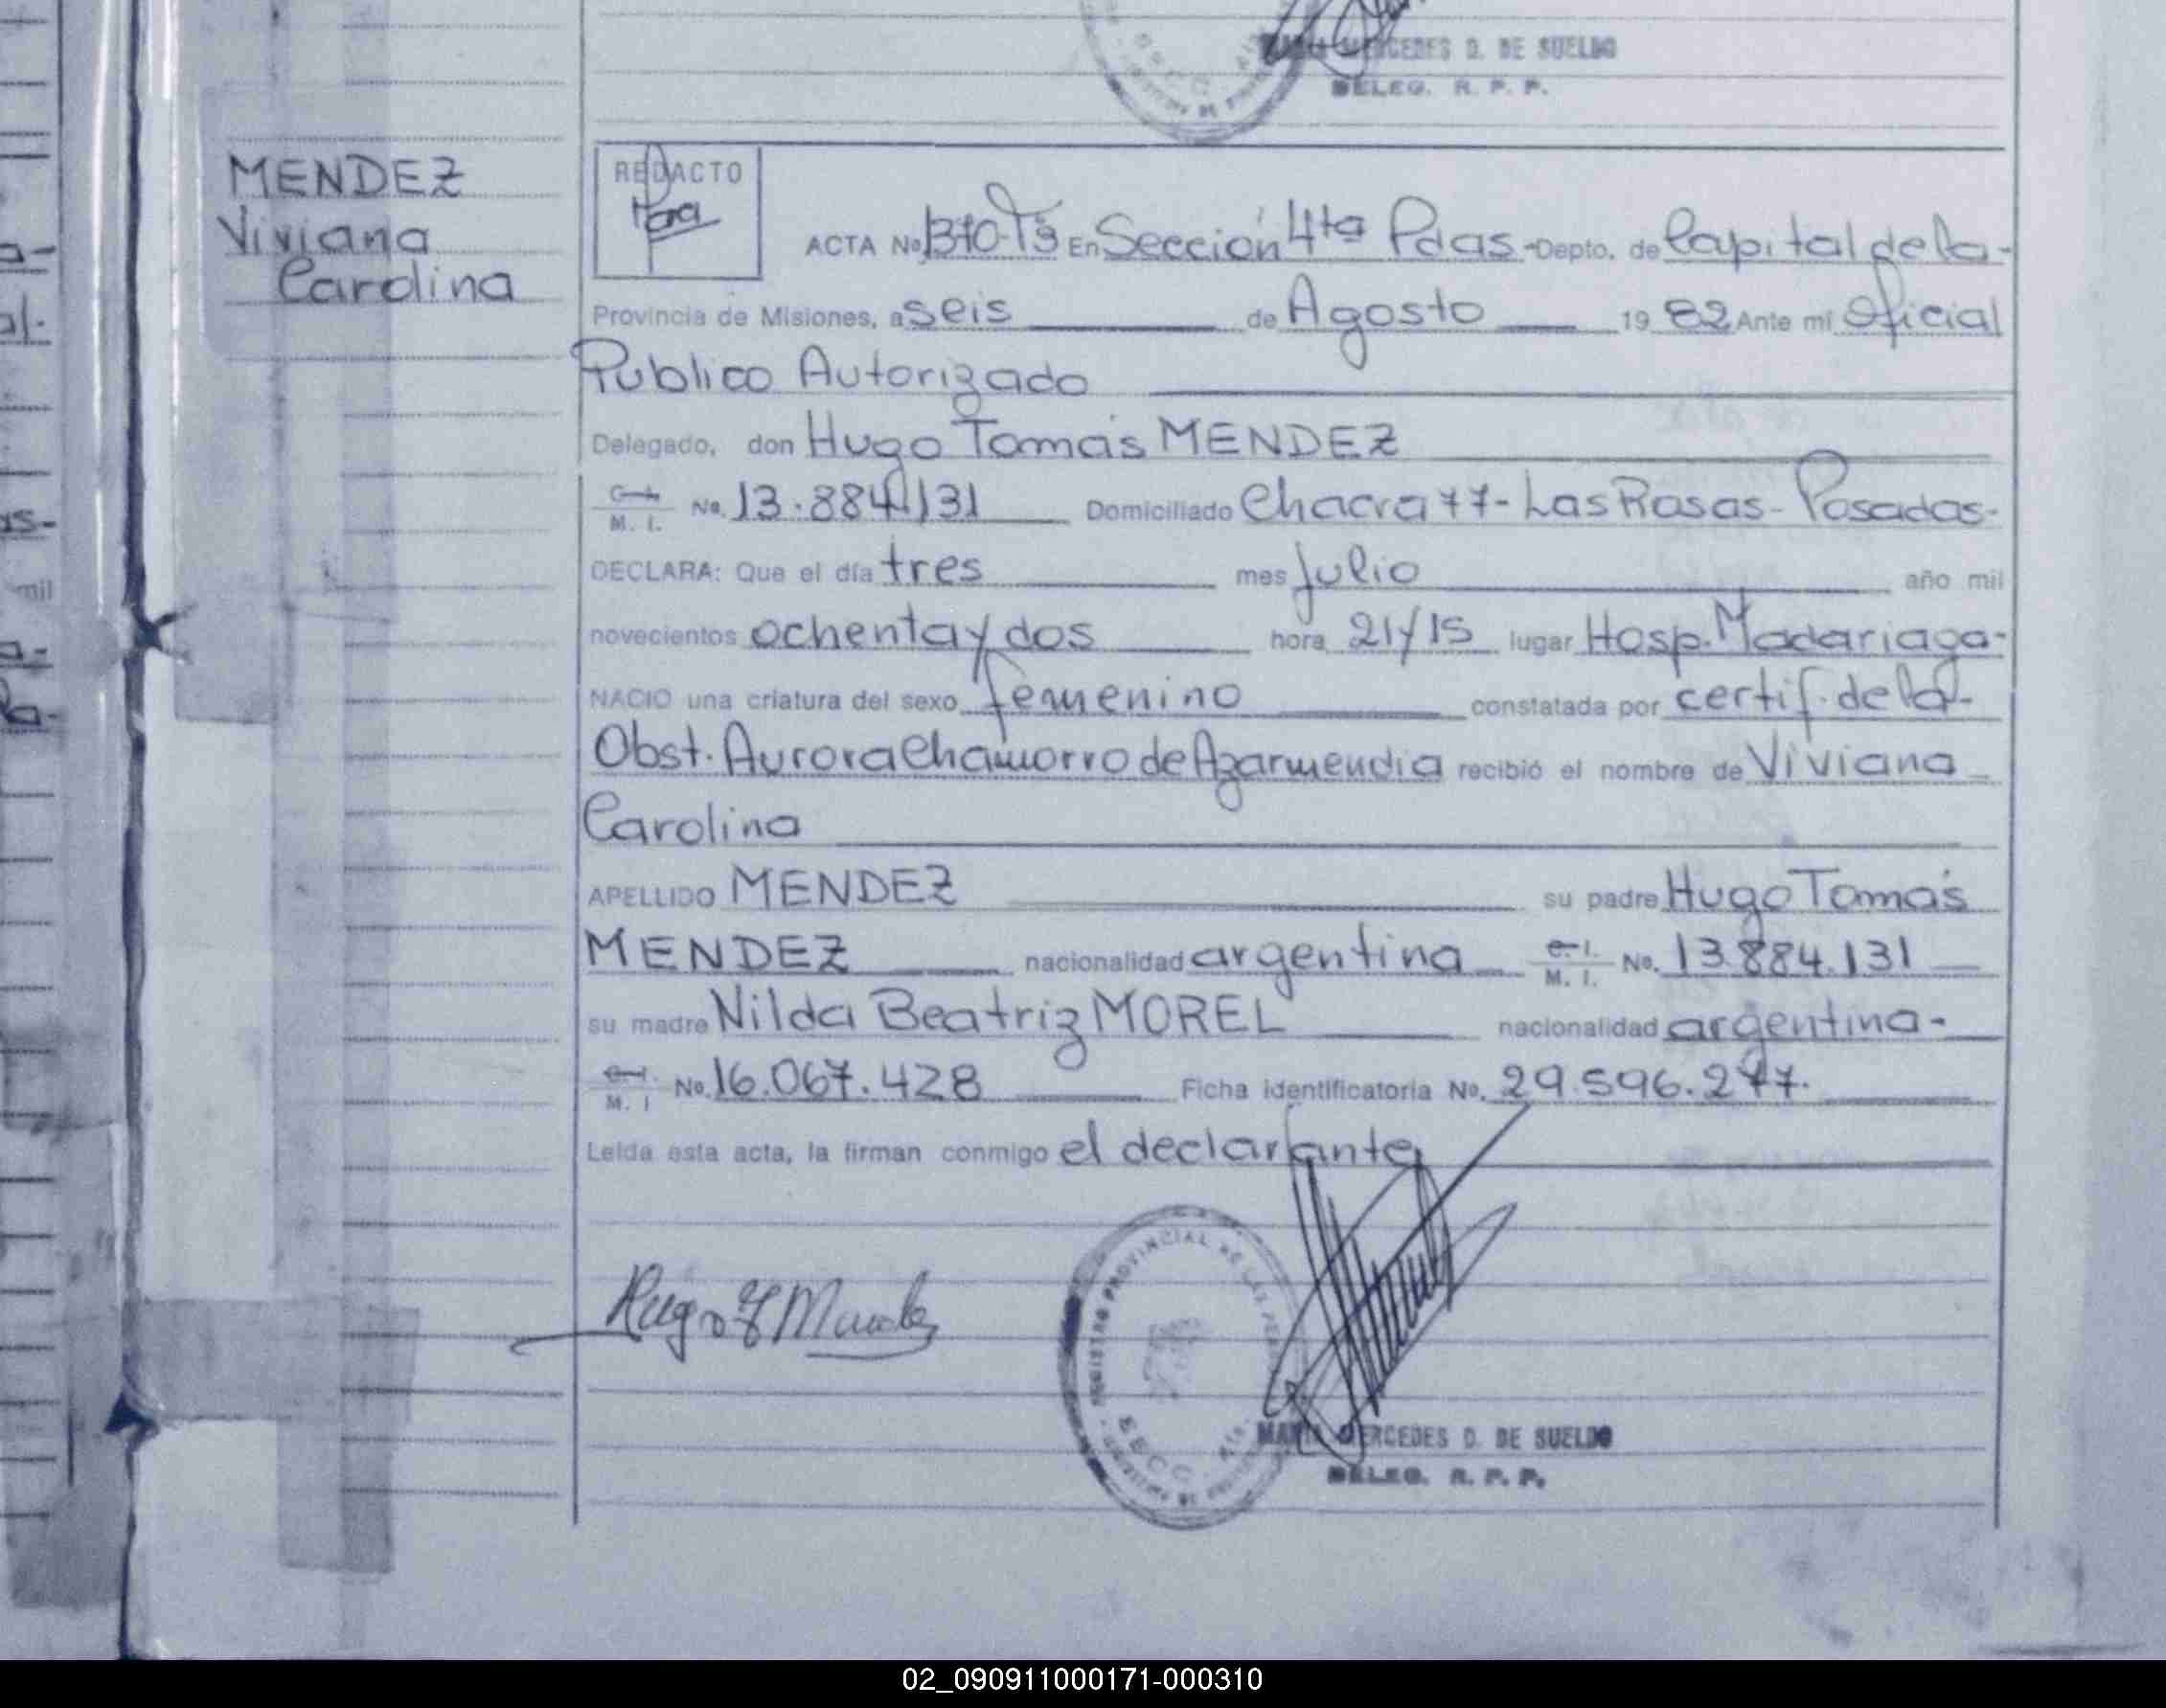 MERCEDES D. DE SUELDO
DELEG. R. P. P.
MENDEZ
Viviana
Carolina
REDACTO
ACTA No 1370-Tº3 En Sección 4ta Pdas.- Depto. de Capital de la-
Provincia de Misiones, a seis de Agosto 1982 Ante mi Oficial
Público Autorizado
Delegado, don Hugo Tomás MENDEZ
M. I. No. 13.884.131 Domiciliado Chacra 77- Las Rosas- Posadas-
DECLARA: Que el día tres mes julio año mil
novecientos ochenta y dos hora 21/15 lugar Hosp. Madariaga-
NACIO una criatura del sexo femenino constatada por certif. de la-
Obst. Aurora Chamorro de Azarmendia recibió el nombre de Viviana
Carolina
APELLIDO MENDEZ su padre Hugo Tomás
MENDEZ nacionalidad argentina C. I. M. I. No. 13.884.131
su madre Nilda Beatriz MOREL nacionalidad argentina-
C. I. M. I No. 16.067.428 Ficha identificatoria No. 29.596.277.
Leida esta acta, la firman conmigo el declarante
Hugo T Mendez
REGISTRO PROVINCIAL DE LAS
SECC. 4ta.
MARIA MERCEDES D. DE SUELDO
DELEG. R. P. P.
02_090911000171-000310